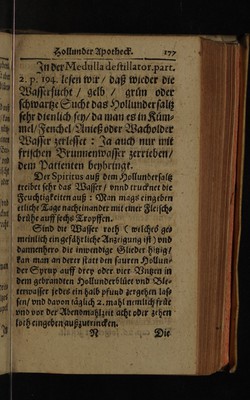 Hollunder Apotheck. 177
In der Medulla destillator. part.
2. p. 194. lesen wir / daß wieder die
Wassersucht / gelb / grün oder
schwartze Sucht das Hollundersaltz
sehr dienlich sey / da man es in Küm-
mel / Fenchel / Anieß oder Wacholder
Wasser zerlesset : Ja auch nur mit
frischen Brunnenwasser zerrieben /
dem Patienten beybringt.
Der Spiritus auß dem Hollundersaltz
treibet sehr das Wasser / vnnd trucknet die
Feuchtigkeiten auß : Man mags eingeben
etliche Tage nacheinander mit einer Fleisch-
brühe auff sechs Tropffen.
Sind die Wasser roth ( welches ge-
meinlich ein gefährliche Anzeigung ist ) vnd
dannenhero die inwendige Glieder hitzig /
kan man an derer statt den sauren Hollun-
der Syrup auff drey oder vier Vntzen in
dem gebrandten Hollunderblüet vnd Ble-
terwasser jedes ein halb pfund zergehen las-
sen / vnd davon täglich 2. mahl nemlich früe
vnd vor der Abendmahlzeit acht oder zehen
loth eingeben außzutrincken.
N Die